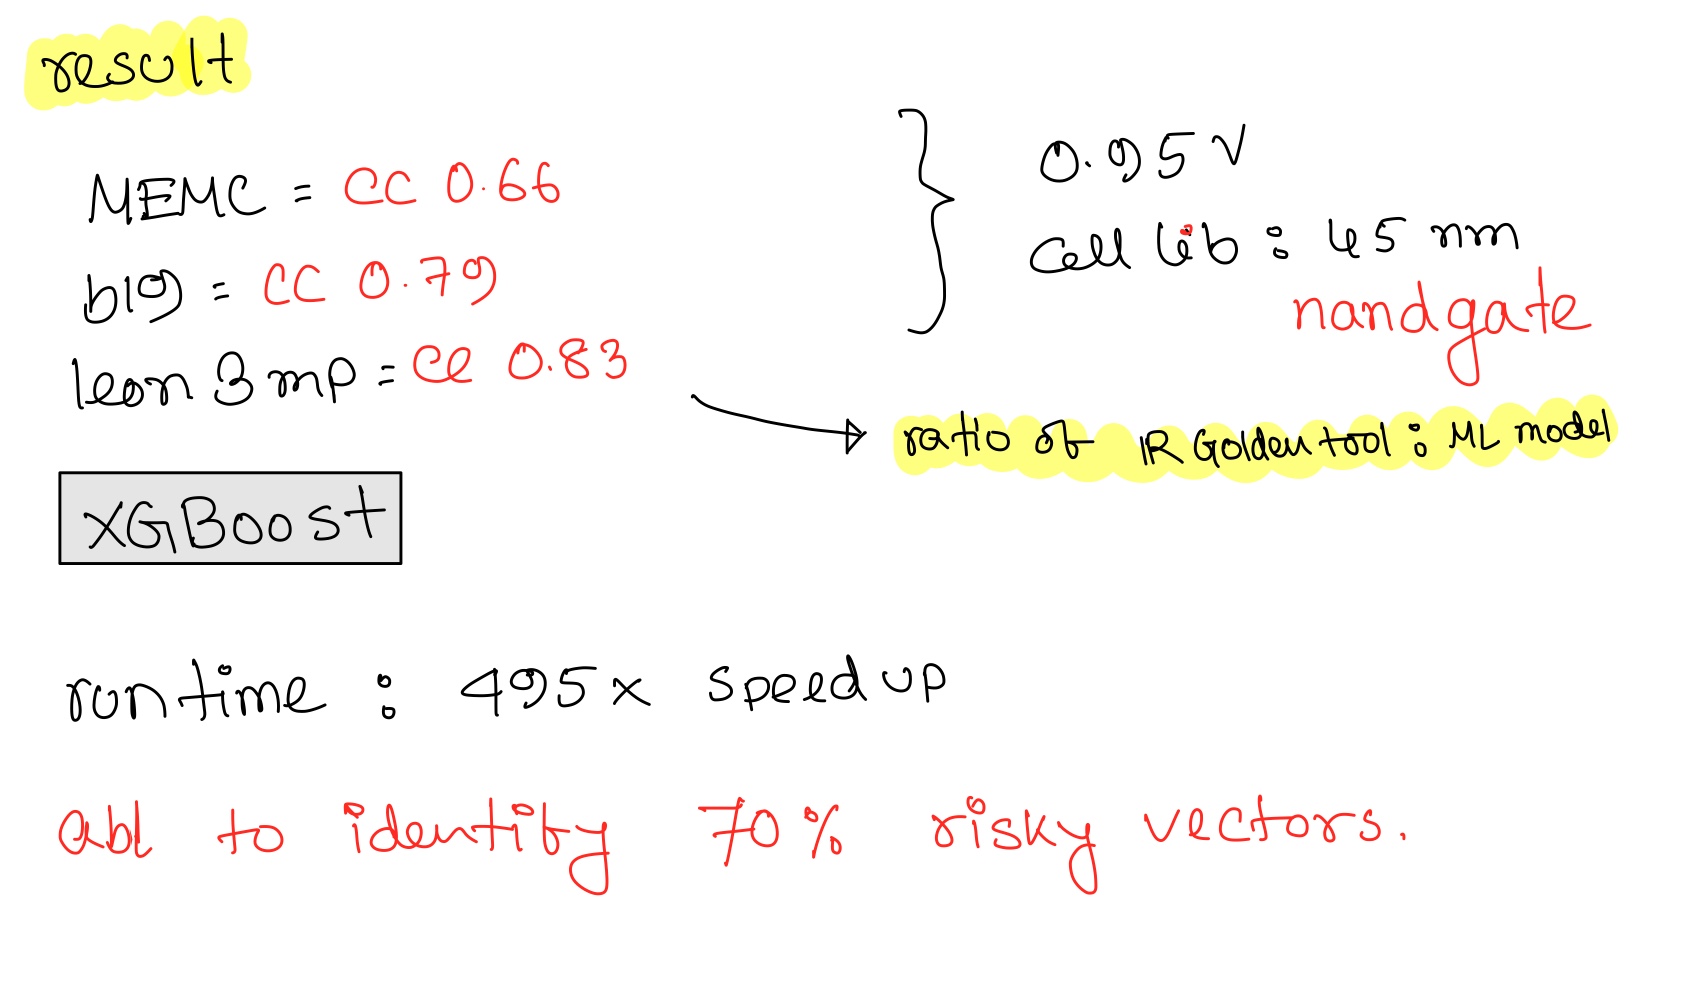 result
MEMC = CC 0.66
b19 = CC 0.79
leon 3 mp = CC 0.83
0.95 V
cell lib : 45 nm
nandgate
ratio of IR Golden tool : ML model
XGBoost
runtime : 495x speed up
abl to identify 70% risky vectors.